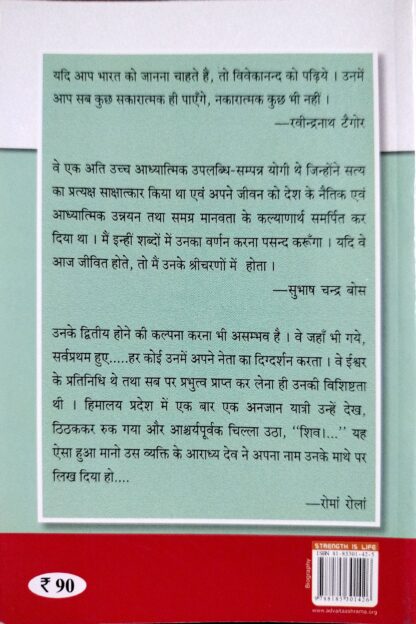 यदि आप भारत को जानना चाहते हैं, तो विवेकानन्द को पढ़िये । उनमें
आप सब कुछ सकारात्मक ही पाएँगे, नकारात्मक कुछ भी नहीं ।
—रवीन्द्रनाथ टैगोर
वे एक अति उच्च आध्यात्मिक उपलब्धि-सम्पन्न योगी थे जिन्होंने सत्य
का प्रत्यक्ष साक्षात्कार किया था एवं अपने जीवन को देश के नैतिक एवं
आध्यात्मिक उन्नयन तथा समग्र मानवता के कल्याणार्थ समर्पित कर
दिया था । मैं इन्हीं शब्दों में उनका वर्णन करना पसन्द करूँगा । यदि वे
आज जीवित होते, तो मैं उनके श्रीचरणों में होता ।
—सुभाष चन्द्र बोस
उनके द्वितीय होने की कल्पना करना भी असम्भव है । वे जहाँ भी गये,
सर्वप्रथम हुए.....हर कोई उनमें अपने नेता का दिग्दर्शन करता । वे ईश्वर
के प्रतिनिधि थे तथा सब पर प्रभुत्व प्राप्त कर लेना ही उनकी विशिष्टता
थी । हिमालय प्रदेश में एक बार एक अनजान यात्री उन्हें देख,
ठिठककर रुक गया और आश्चर्यपूर्वक चिल्ला उठा, ‘‘शिव!...’’ यह
ऐसा हुआ मानो उस व्यक्ति के आराध्य देव ने अपना नाम उनके माथे पर
लिख दिया हो....
—रोमां रोलां
₹ 90
Biography
STRENGTH IS LIFE
ISBN 81-85301-42-5
9 788185 301426
www.advaitaashrama.org